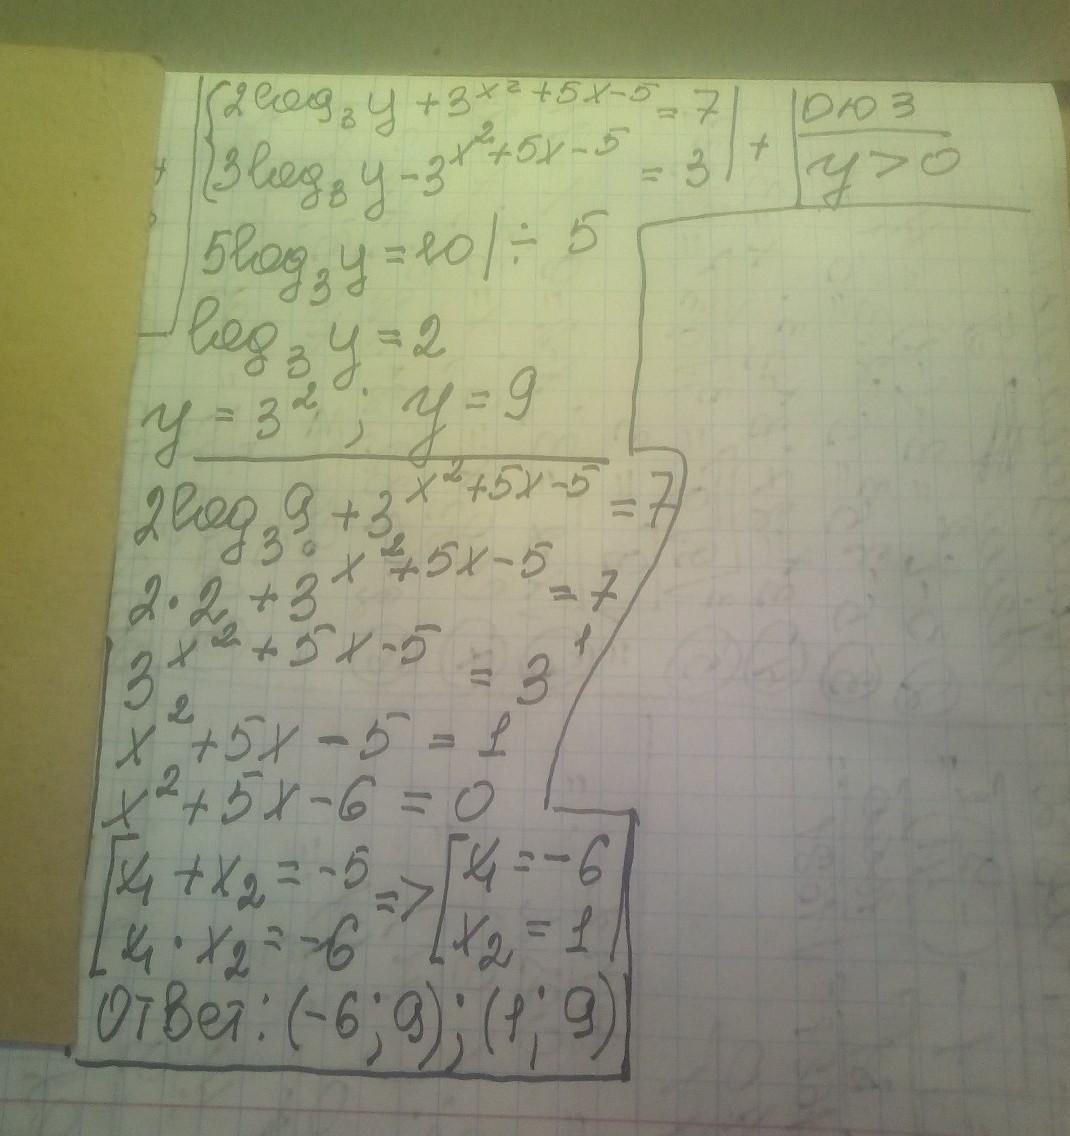 {2log₃y + 3^(x²+5x-5) = 7 | + | ОЮЗ
{3log₃y - 3^(x²+5x-5) = 3 | y > 0
5log₃y = 10 | ÷ 5
log₃y = 2
y = 3²; y = 9
2log₃9 + 3^(x²+5x-5) = 7
2·2 + 3^(x²+5x-5) = 7
3^(x²+5x-5) = 3¹
x² + 5x - 5 = 1
x² + 5x - 6 = 0
[x₁ + x₂ = -5 => [x₁ = -6
[x₁ · x₂ = -6 [x₂ = 1
Ответ: (-6; 9); (1; 9)